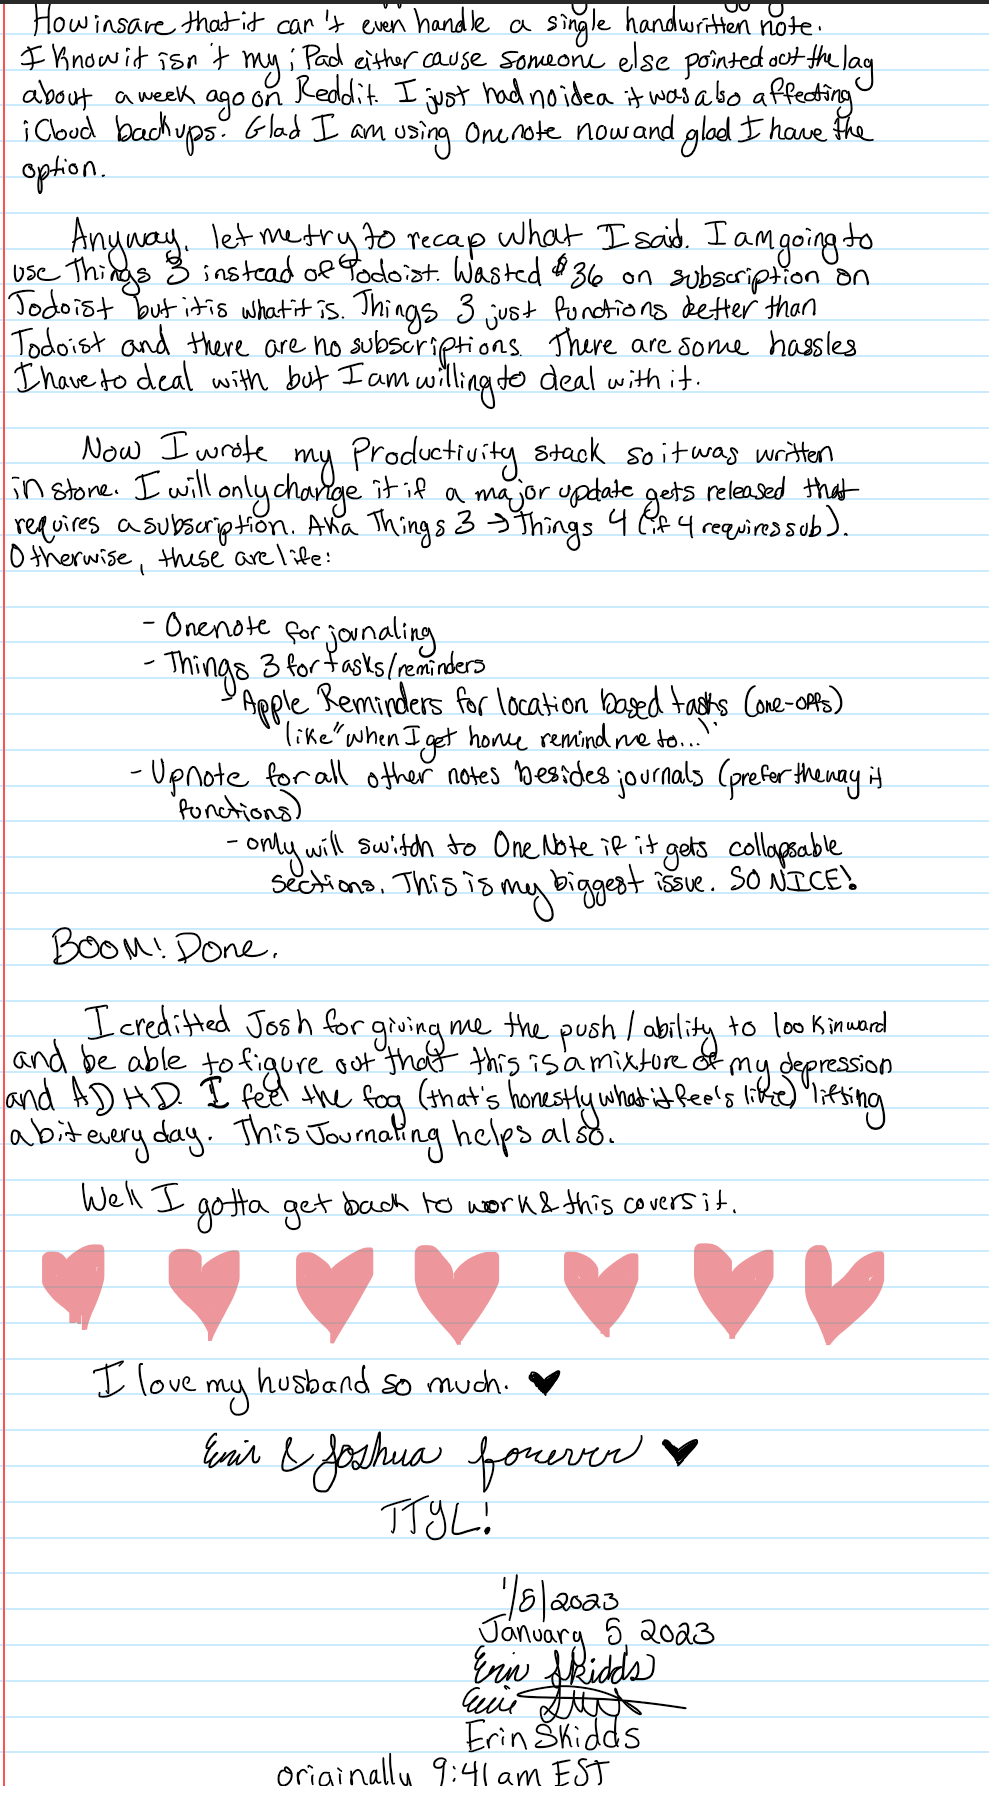 How insane that it can't even handle a single handwritten note.
I Know it isn't my iPad either cause someone else pointed out the lag
about a week ago on Reddit. I just had no idea it was also affecting
iCloud backups. Glad I am using Onenote now and glad I have the
option.
Anyway, let me try to recap what I said. I am going to
use Things 3 instead of Todoist. Wasted $36 on subscription on
Todoist but it is what it is. Things 3 just functions better than
Todoist and there are no subscriptions. There are some hassles
I have to deal with but I am willing to deal with it.
Now I wrote my Productivity stack so it was written
in stone. I will only change it if a major update gets released that
requires a subscription. Aka Things 3 → Things 4 (if 4 requires sub).
Otherwise, these are life:
- Onenote for journaling
- Things 3 for tasks/reminders
- Apple Reminders for location based tasks (one-offs)
like "when I get home remind me to..."
- Upnote for all other notes besides journals (prefer the way it
functions)
- only will switch to OneNote if it gets collapsable
sections. This is my biggest issue. SO NICE!
BOOM! Done.
I creditted Josh for giving me the push / ability to look inward
and be able to figure out that this is a mixture of my depression
and ADHD. I feel the fog (that's honestly what it feels like) lifting
a bit every day. This Journaling helps also.
Well I gotta get back to work & this covers it.
I love my husband so much. ♥
Erin & Joshua forever ♥
TTYL!
1/5/2023
January 5, 2023
Erin Skidds
Erin
Erin Skidds
originally 9:41 am EST